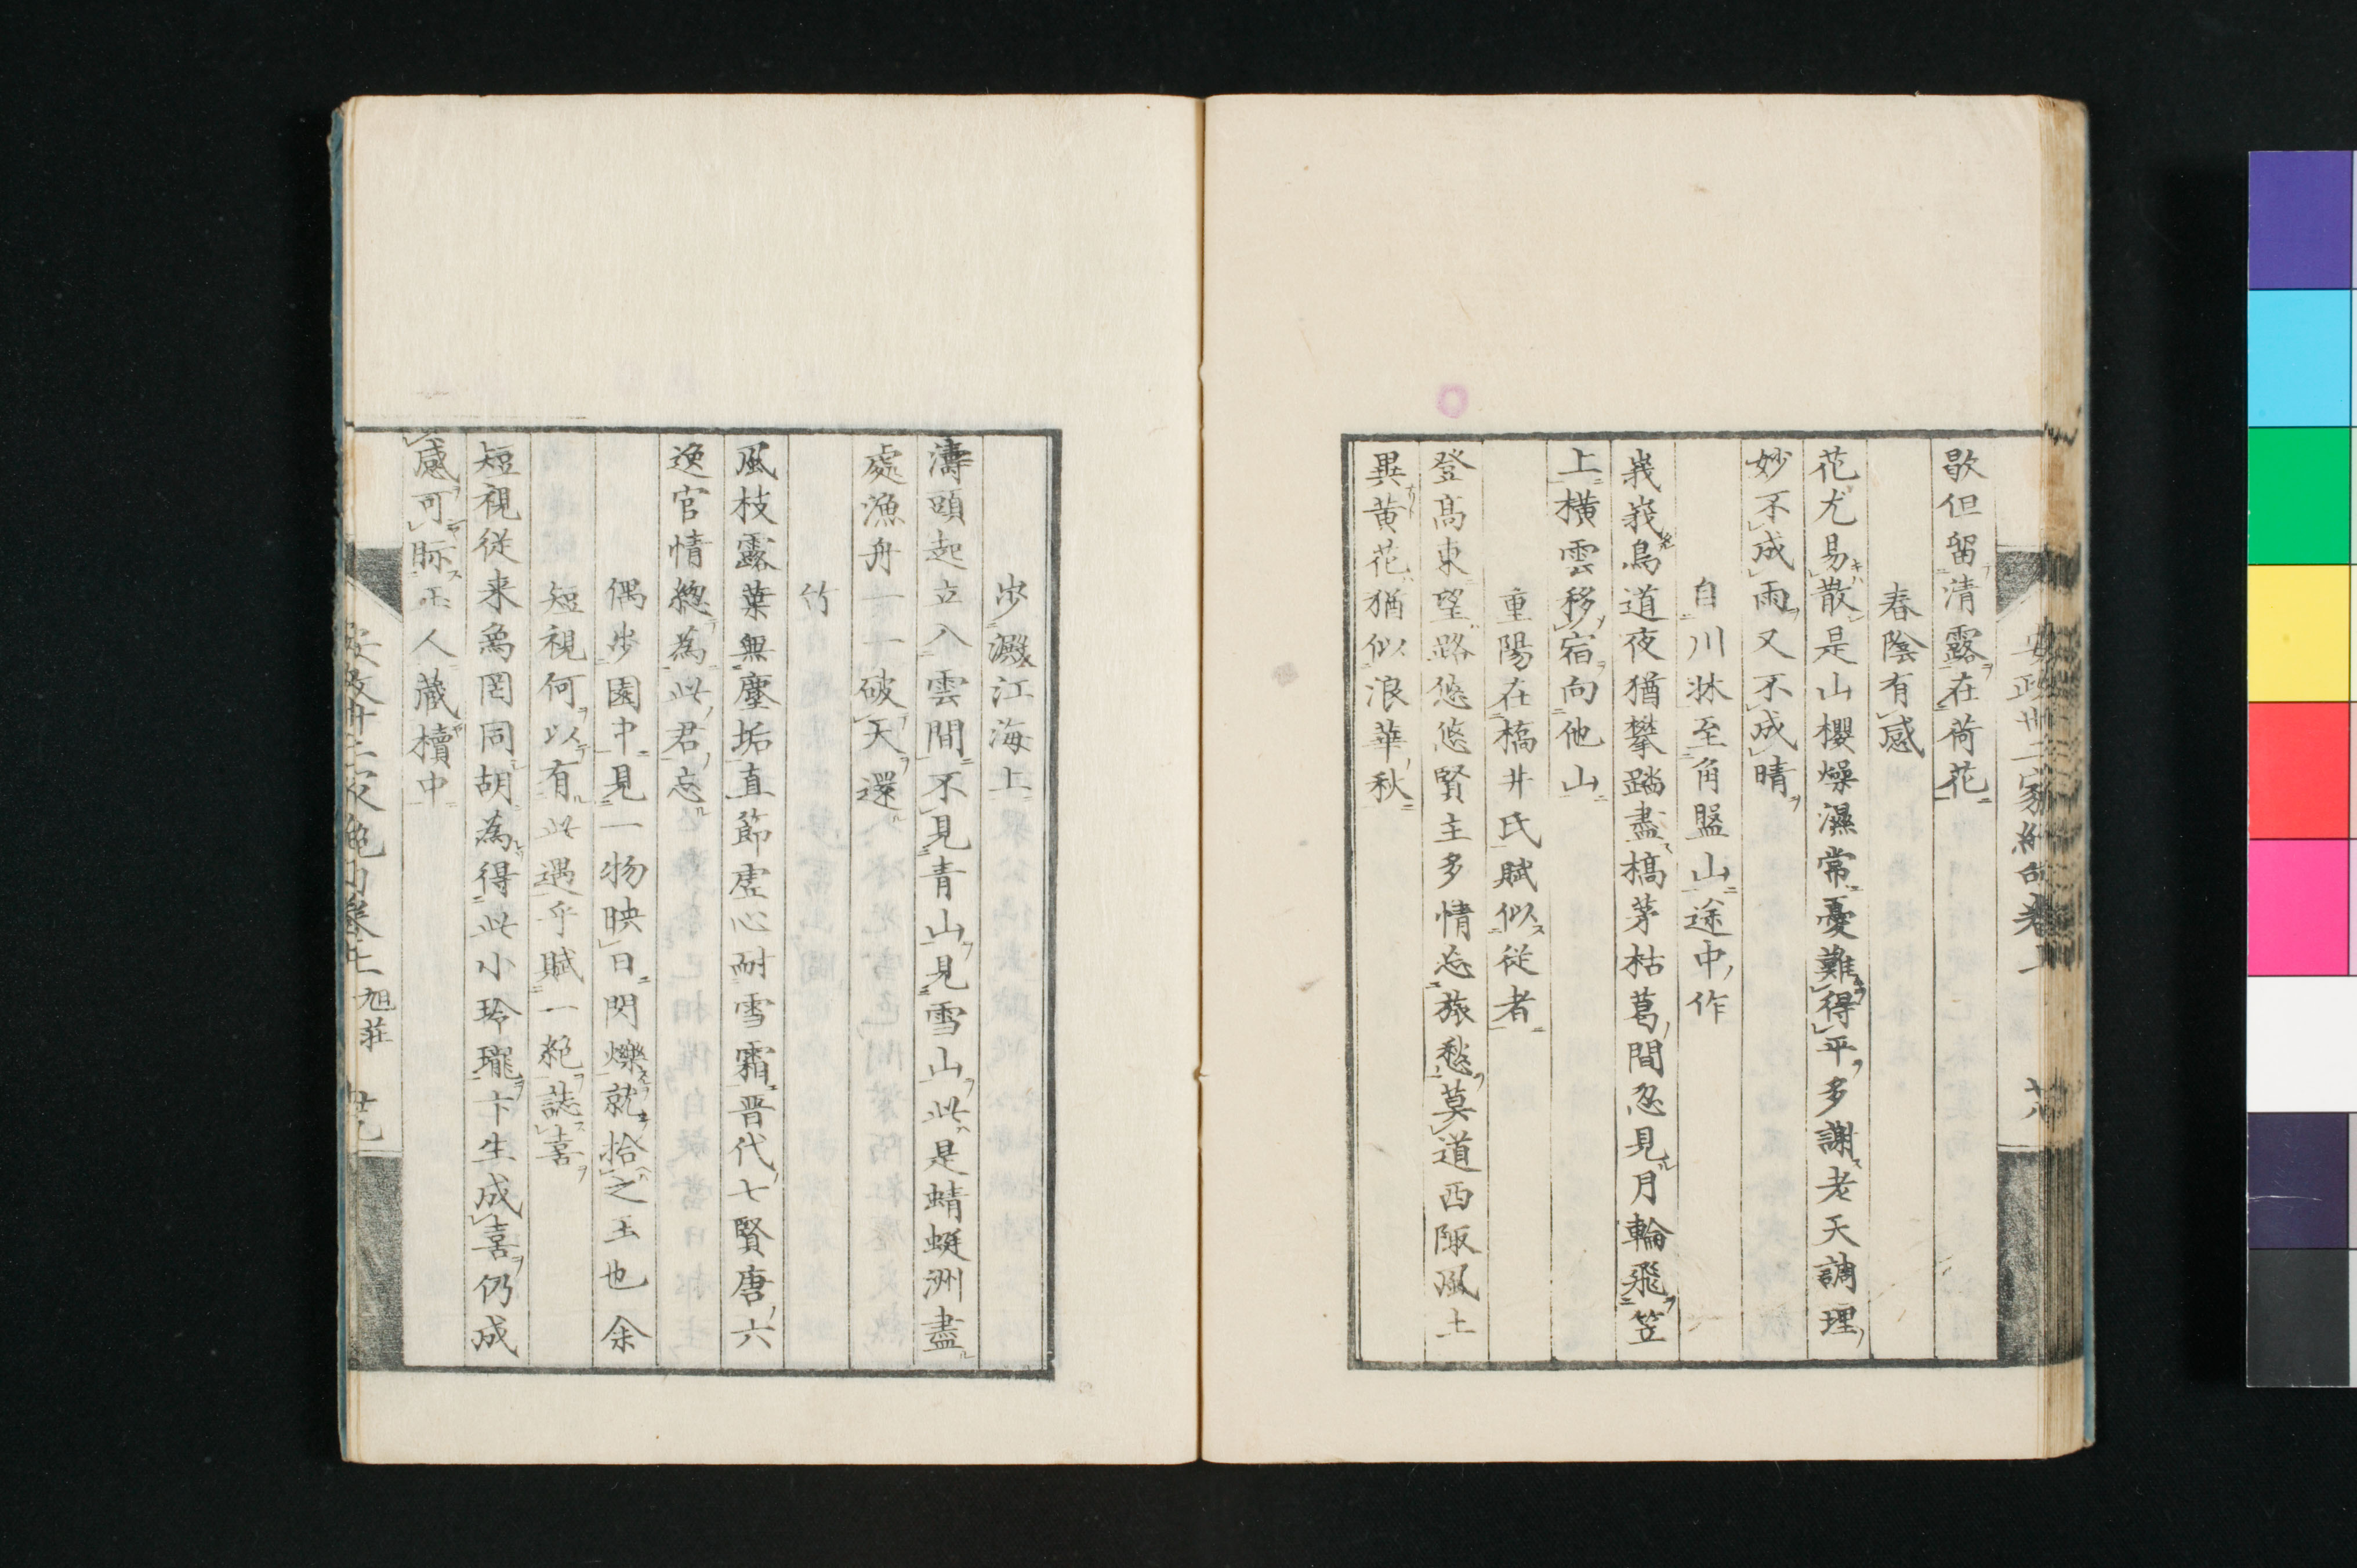 歇但留清露在荷花
春陰有感
花尤易散是山櫻燥濕常憂難得平多謝老天調理
妙不成雨又不成晴
自川牀至角盤山途中作
峩峩鳥道夜猶攀踏盡槁茅枯葛間忽見月輪飛笠
上橫雲移宿向他山
重陽在橋井氏賦似從者
登高東望路悠悠賢主多情忘旅愁莫道西陬風土
異黃花猶似浪華秋
步澱江海上
濤頭起立入雲間不見青山見雪山此是蜻蜓洲盡
處漁舟一一破天還
竹
風枝露葉無塵垢直節虛心耐雪霜晋代七賢唐六
逸官情總為此君忘
偶步園中見一物映日閃爍就拾之玉也余
短視何以有此遇乎賦一絕誌喜
短視從来象罔同胡為得此小玲瓏卞生成喜仍成
感可眎玉人藏櫝中
安政卅二家絕句卷上 旭莊